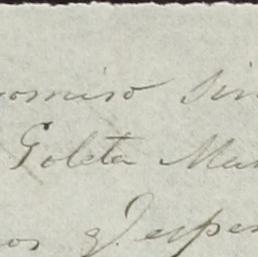 omiso Sin
Goleta Mar
os y esper